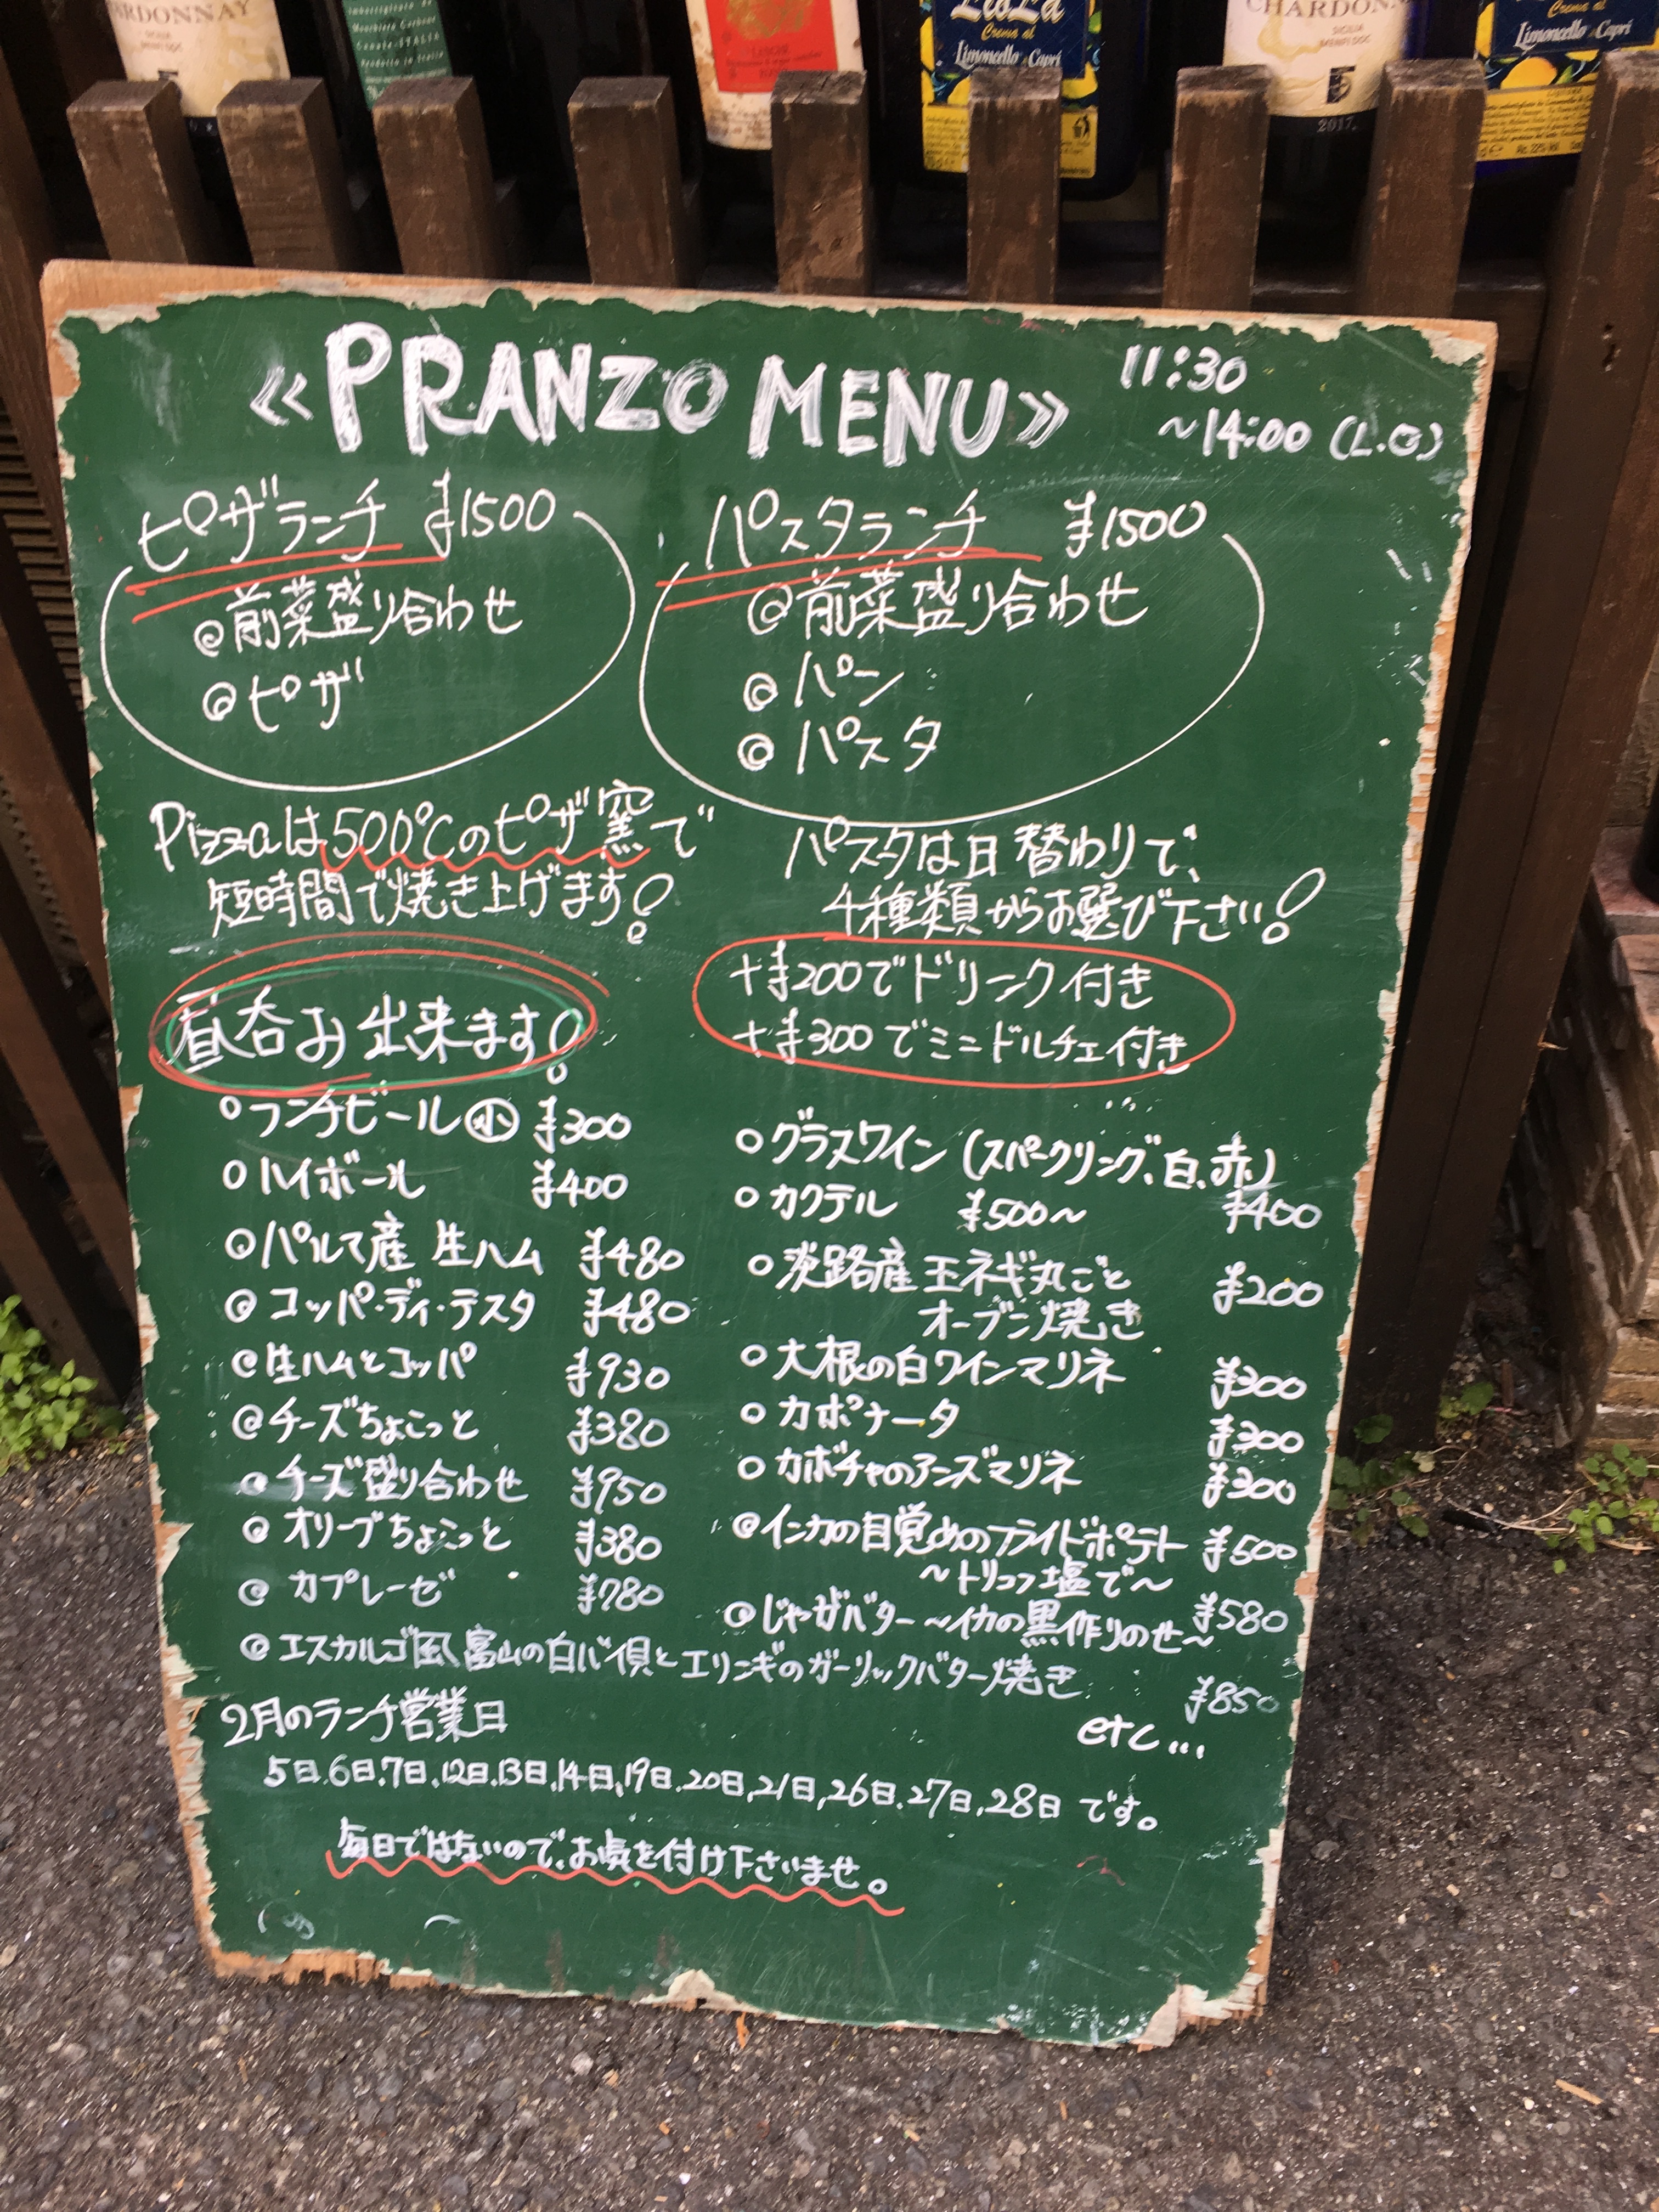 CHARDONNAY
SICILIA
MENFI DOC
Limoncello di Capri
CHARDONN
SICILIA
MENFI DOC
2017.
Limoncello di Capri
≪PRANZO MENU≫
11:30
~14:00 (L.O)
ピザランチ ¥1500
◎前菜盛り合わせ
◎ピザ
パスタランチ ¥1500
◎前菜盛り合わせ
◎パン
◎パスタ
Pizzaは500℃のピザ窯で
短時間で焼き上げます!
パスタは日替わりで、
4種類からお選び下さい!
+¥200でドリンク付き
+¥300でミニドルチェ付き
昼呑み出来ます!
○ランチビール㊙小 ¥300
○ハイボール ¥400
◎パルマ産 生ハム ¥480
◎コッパ・ディ・テスタ ¥480
◎生ハムとコッパ ¥930
◎チーズちょこっと ¥380
◎チーズ盛り合わせ ¥950
◎オリーブちょこっと ¥380
◎カプレーゼ ¥780
○グラスワイン (スパークリング、白、赤)
¥400
○カクテル ¥500~
○淡路産玉ネギ丸ごと
オーブン焼き ¥200
○大根の白ワインマリネ ¥300
○カポナータ ¥300
○カボチャのアンズマリネ ¥300
◎インカの目覚めのフライドポテト ¥500
~トリュフ塩で~
◎じゃがバター~イカの黒作りのせ~ ¥580
◎エスカルゴ風 富山の白バイ貝とエリンギのガーリックバター焼き
¥850
etc...
2月のランチ営業日
5日.6日.7日.12日.13日.14日.19日.20日.21日.26日.27日.28日 です。
毎日ではないので、お気を付け下さいませ。